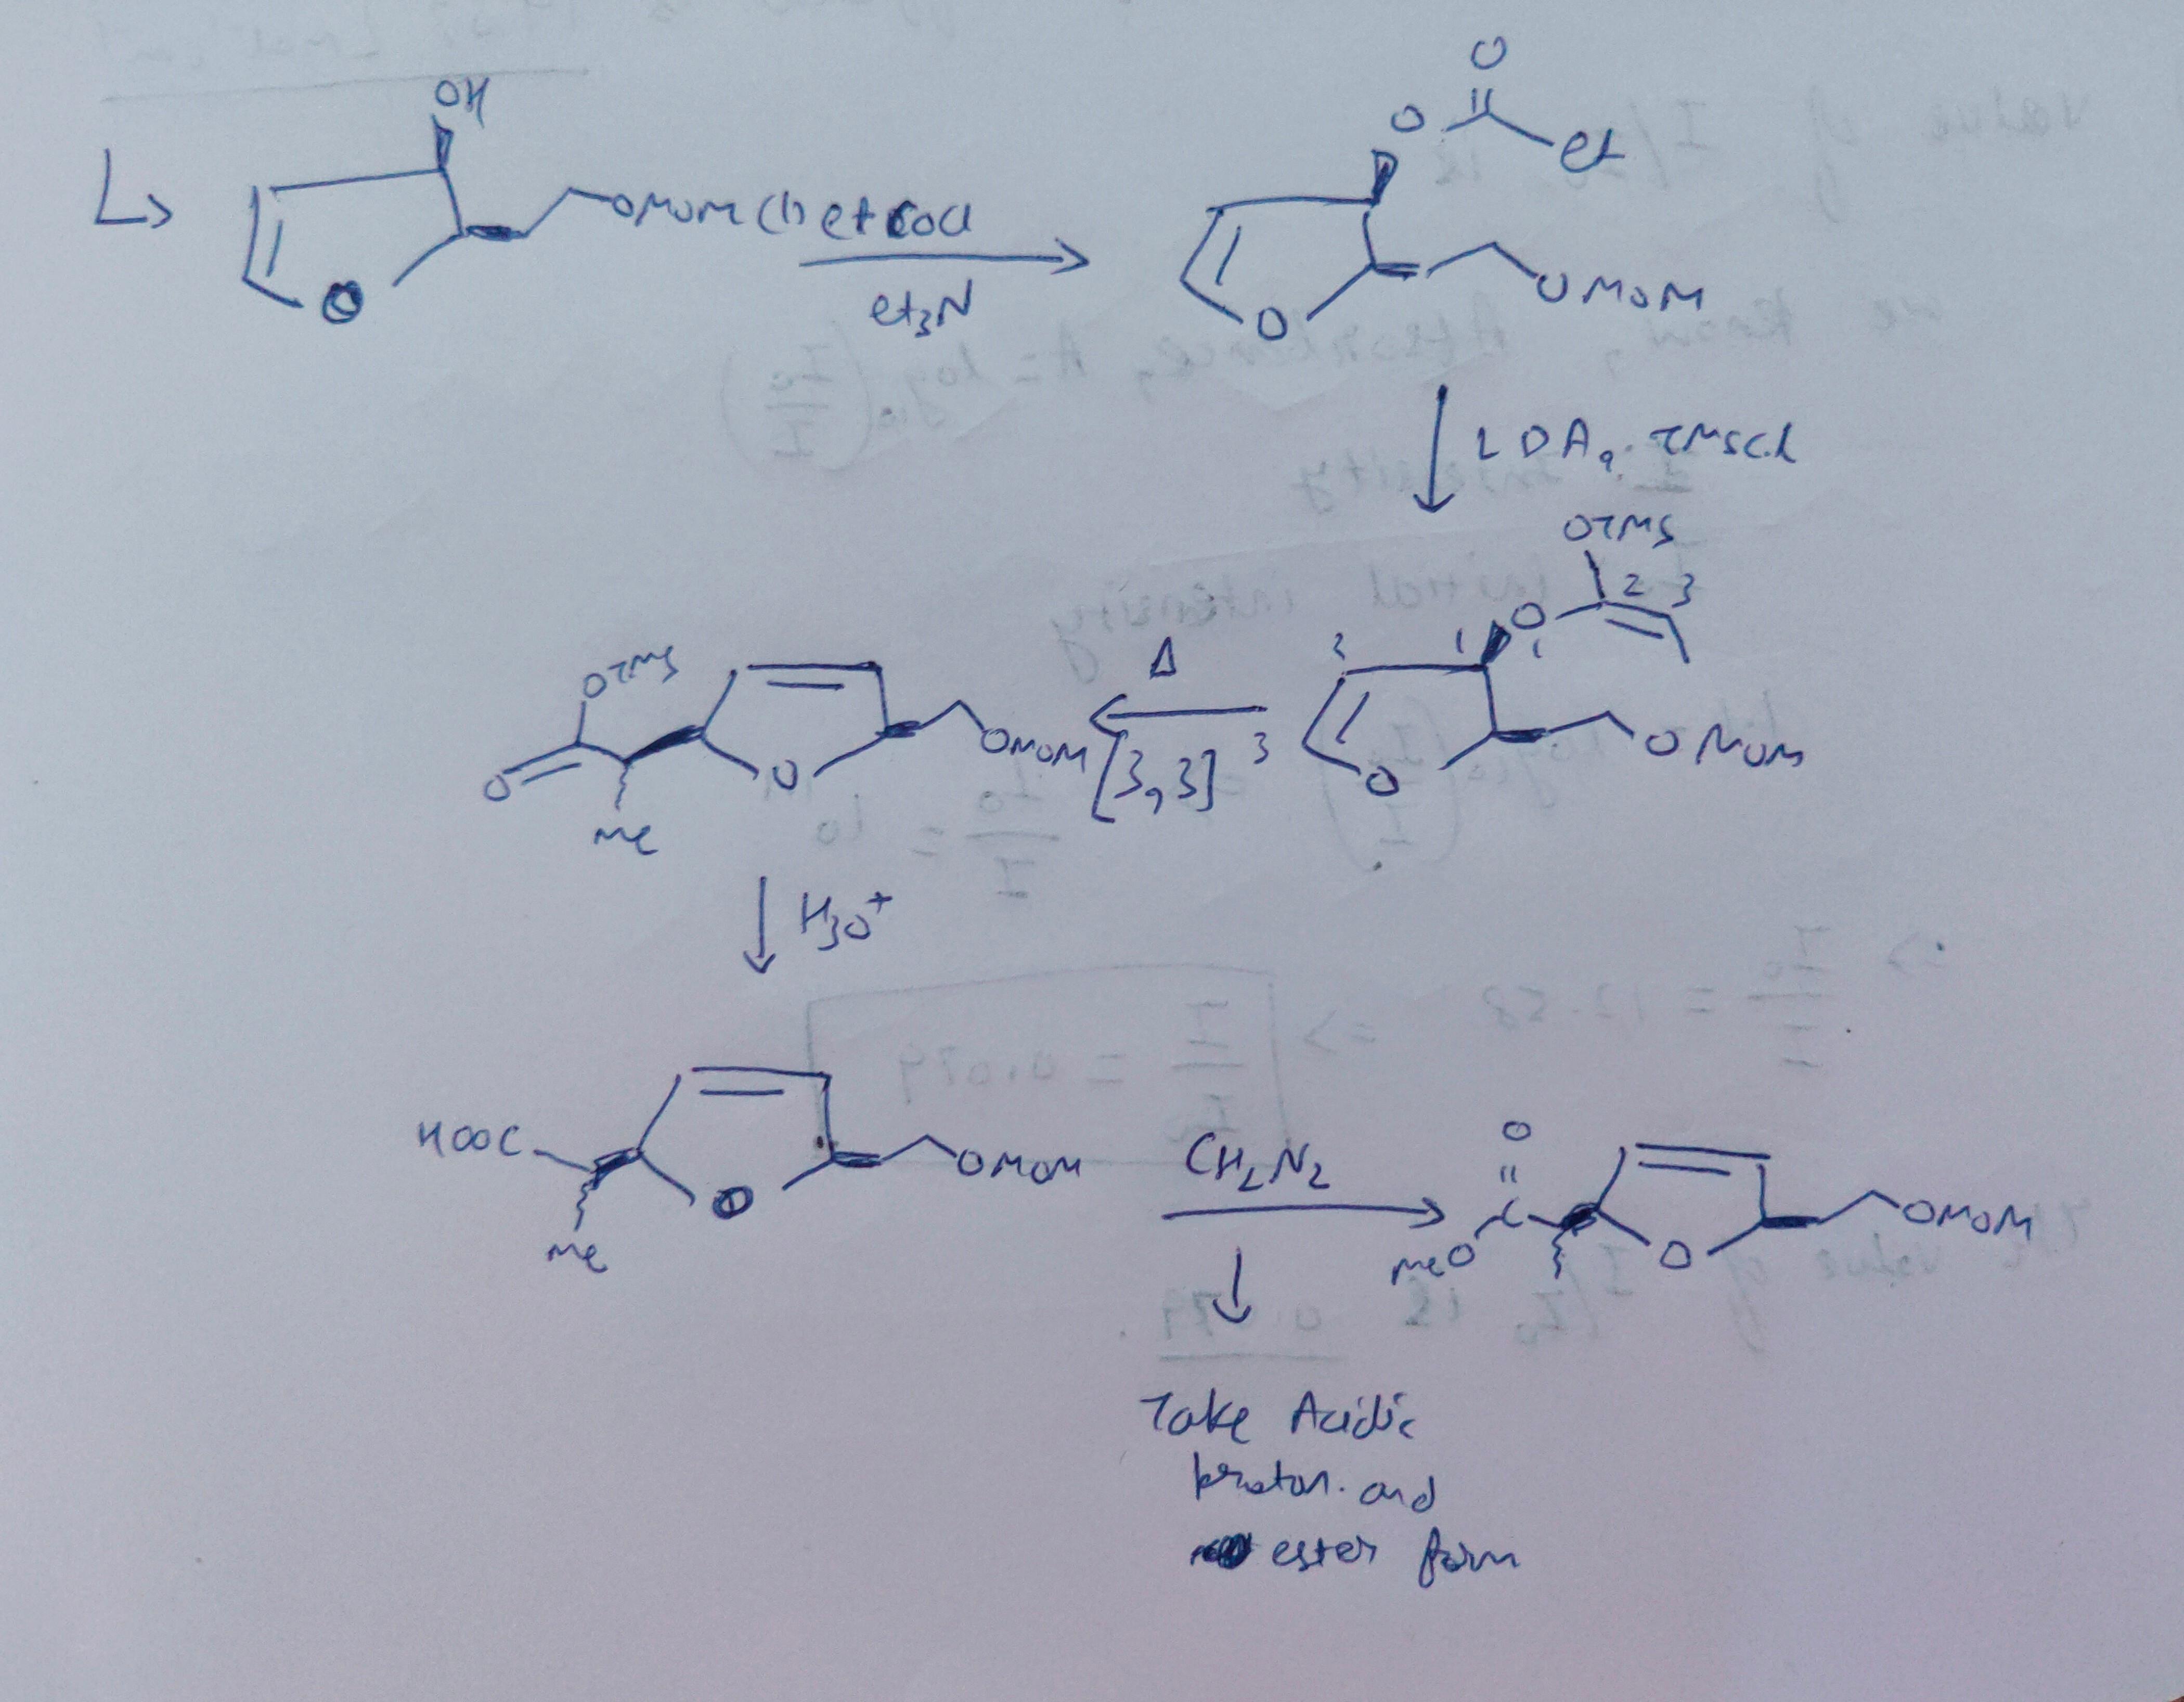 OH
OMOM (1) etcocl
et3N
O
O
O
et
O
OMOM
LDA, TMSCl
OTMS
O
2
3
1
1
2
3
O
OMOM
Δ
[3,3]
OTMS
O
Me
O
OMOM
H3O+
HOOC
Me
O
OMOM
CH2N2
O
C
MeO
O
OMOM
Take Acidic
proton. and
ester form